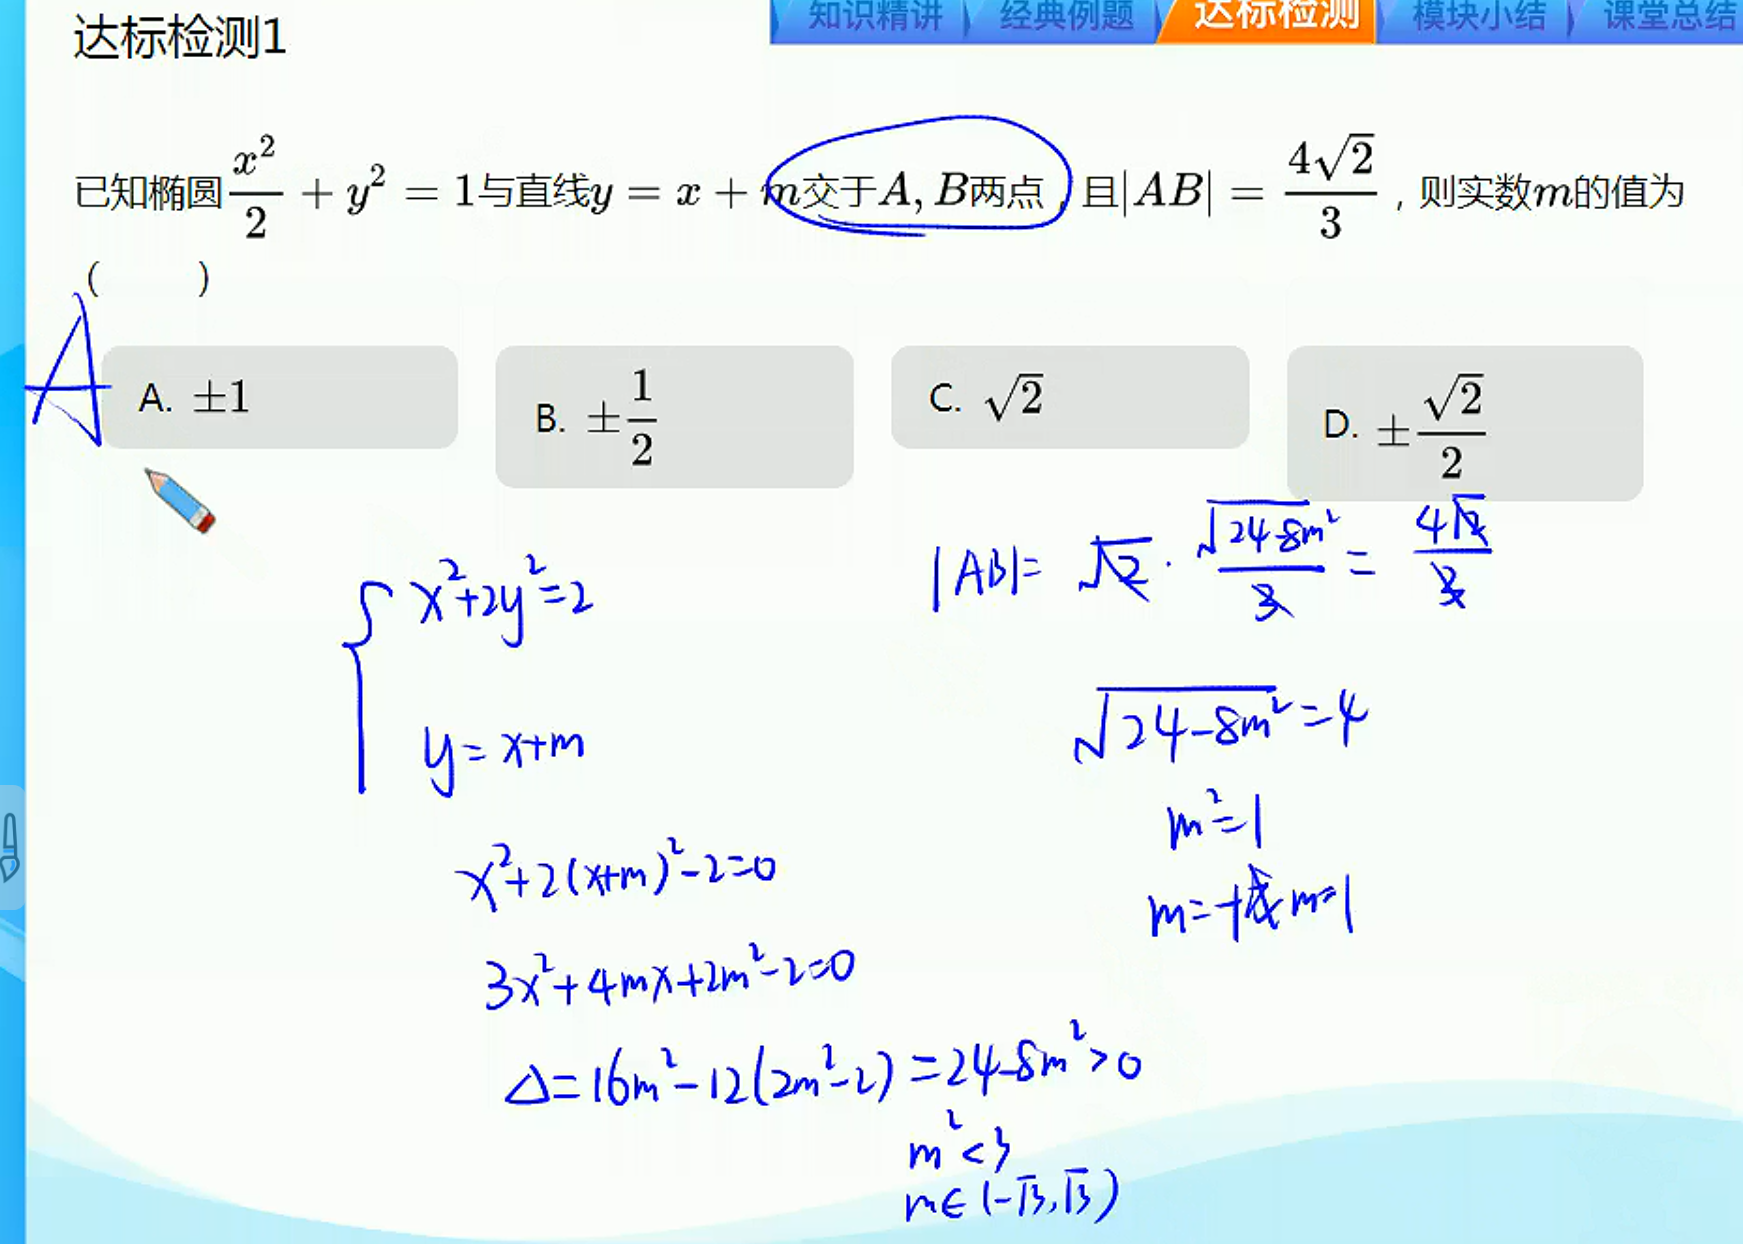 达标检测1
知识精讲 经典例题 达标检测 模块小结 课堂总结
已知椭圆x²/2 + y² = 1与直线y = x + m交于A, B两点，且|AB| = 4√2/3，则实数m的值为
(    )
A
A. ±1
B. ±1/2
C. √2
D. ±√2/2
{ x²+2y²=2
y=x+m
x²+2(x+m)²-2=0
3x²+4mx+2m²-2=0
Δ=16m²-12(2m²-2)=24-8m²>0
m²<3
m∈(-√3,√3)
|AB|=√2·√24-8m²/3=4√2/3
√24-8m²=4
m²=1
m=-1 m=1